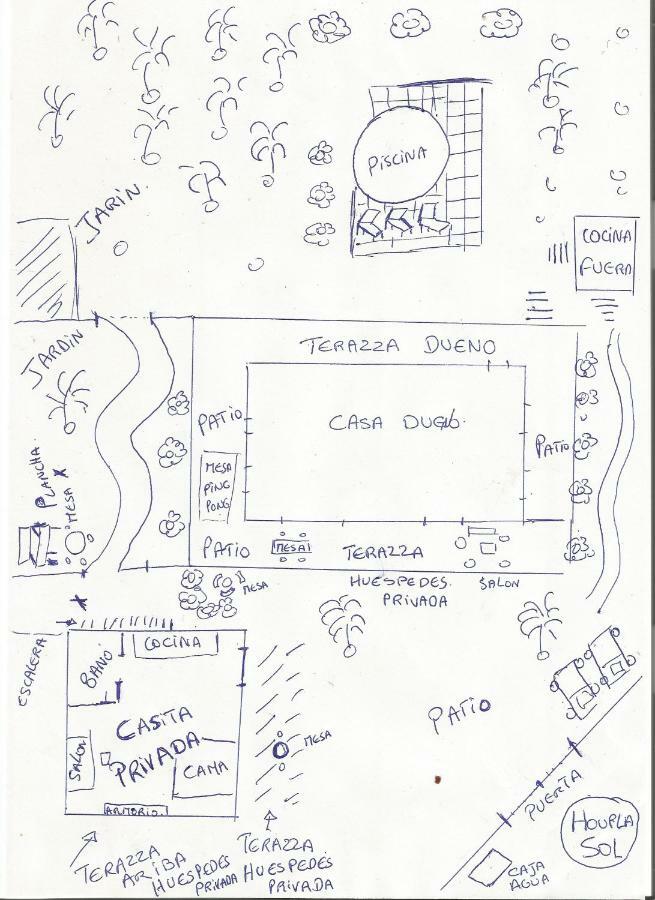 JARIN.
PISCINA
COCINA
FUERA
JARDIN
TERAZZA DUENO
CASA DUENO.
PATIO
PATIO
MESA
PING
PONG
PLANCHA.
MESA X
PATIO
MESA
TERAZZA
HUESPEDES.
PRIVADA
SALON
MESA
ESCALERA
BANO
COCINA
CASITA
PRIVADA
SALON
CAMA
ARMORIO.
MESA
PATIO
PUERTA
HOUPLA
SOL
CAJA
AGUA
TERAZZA
ARIBA
HUESPEDES
PRIVADA
TERAZZA
HUESPEDES
PRIVADA